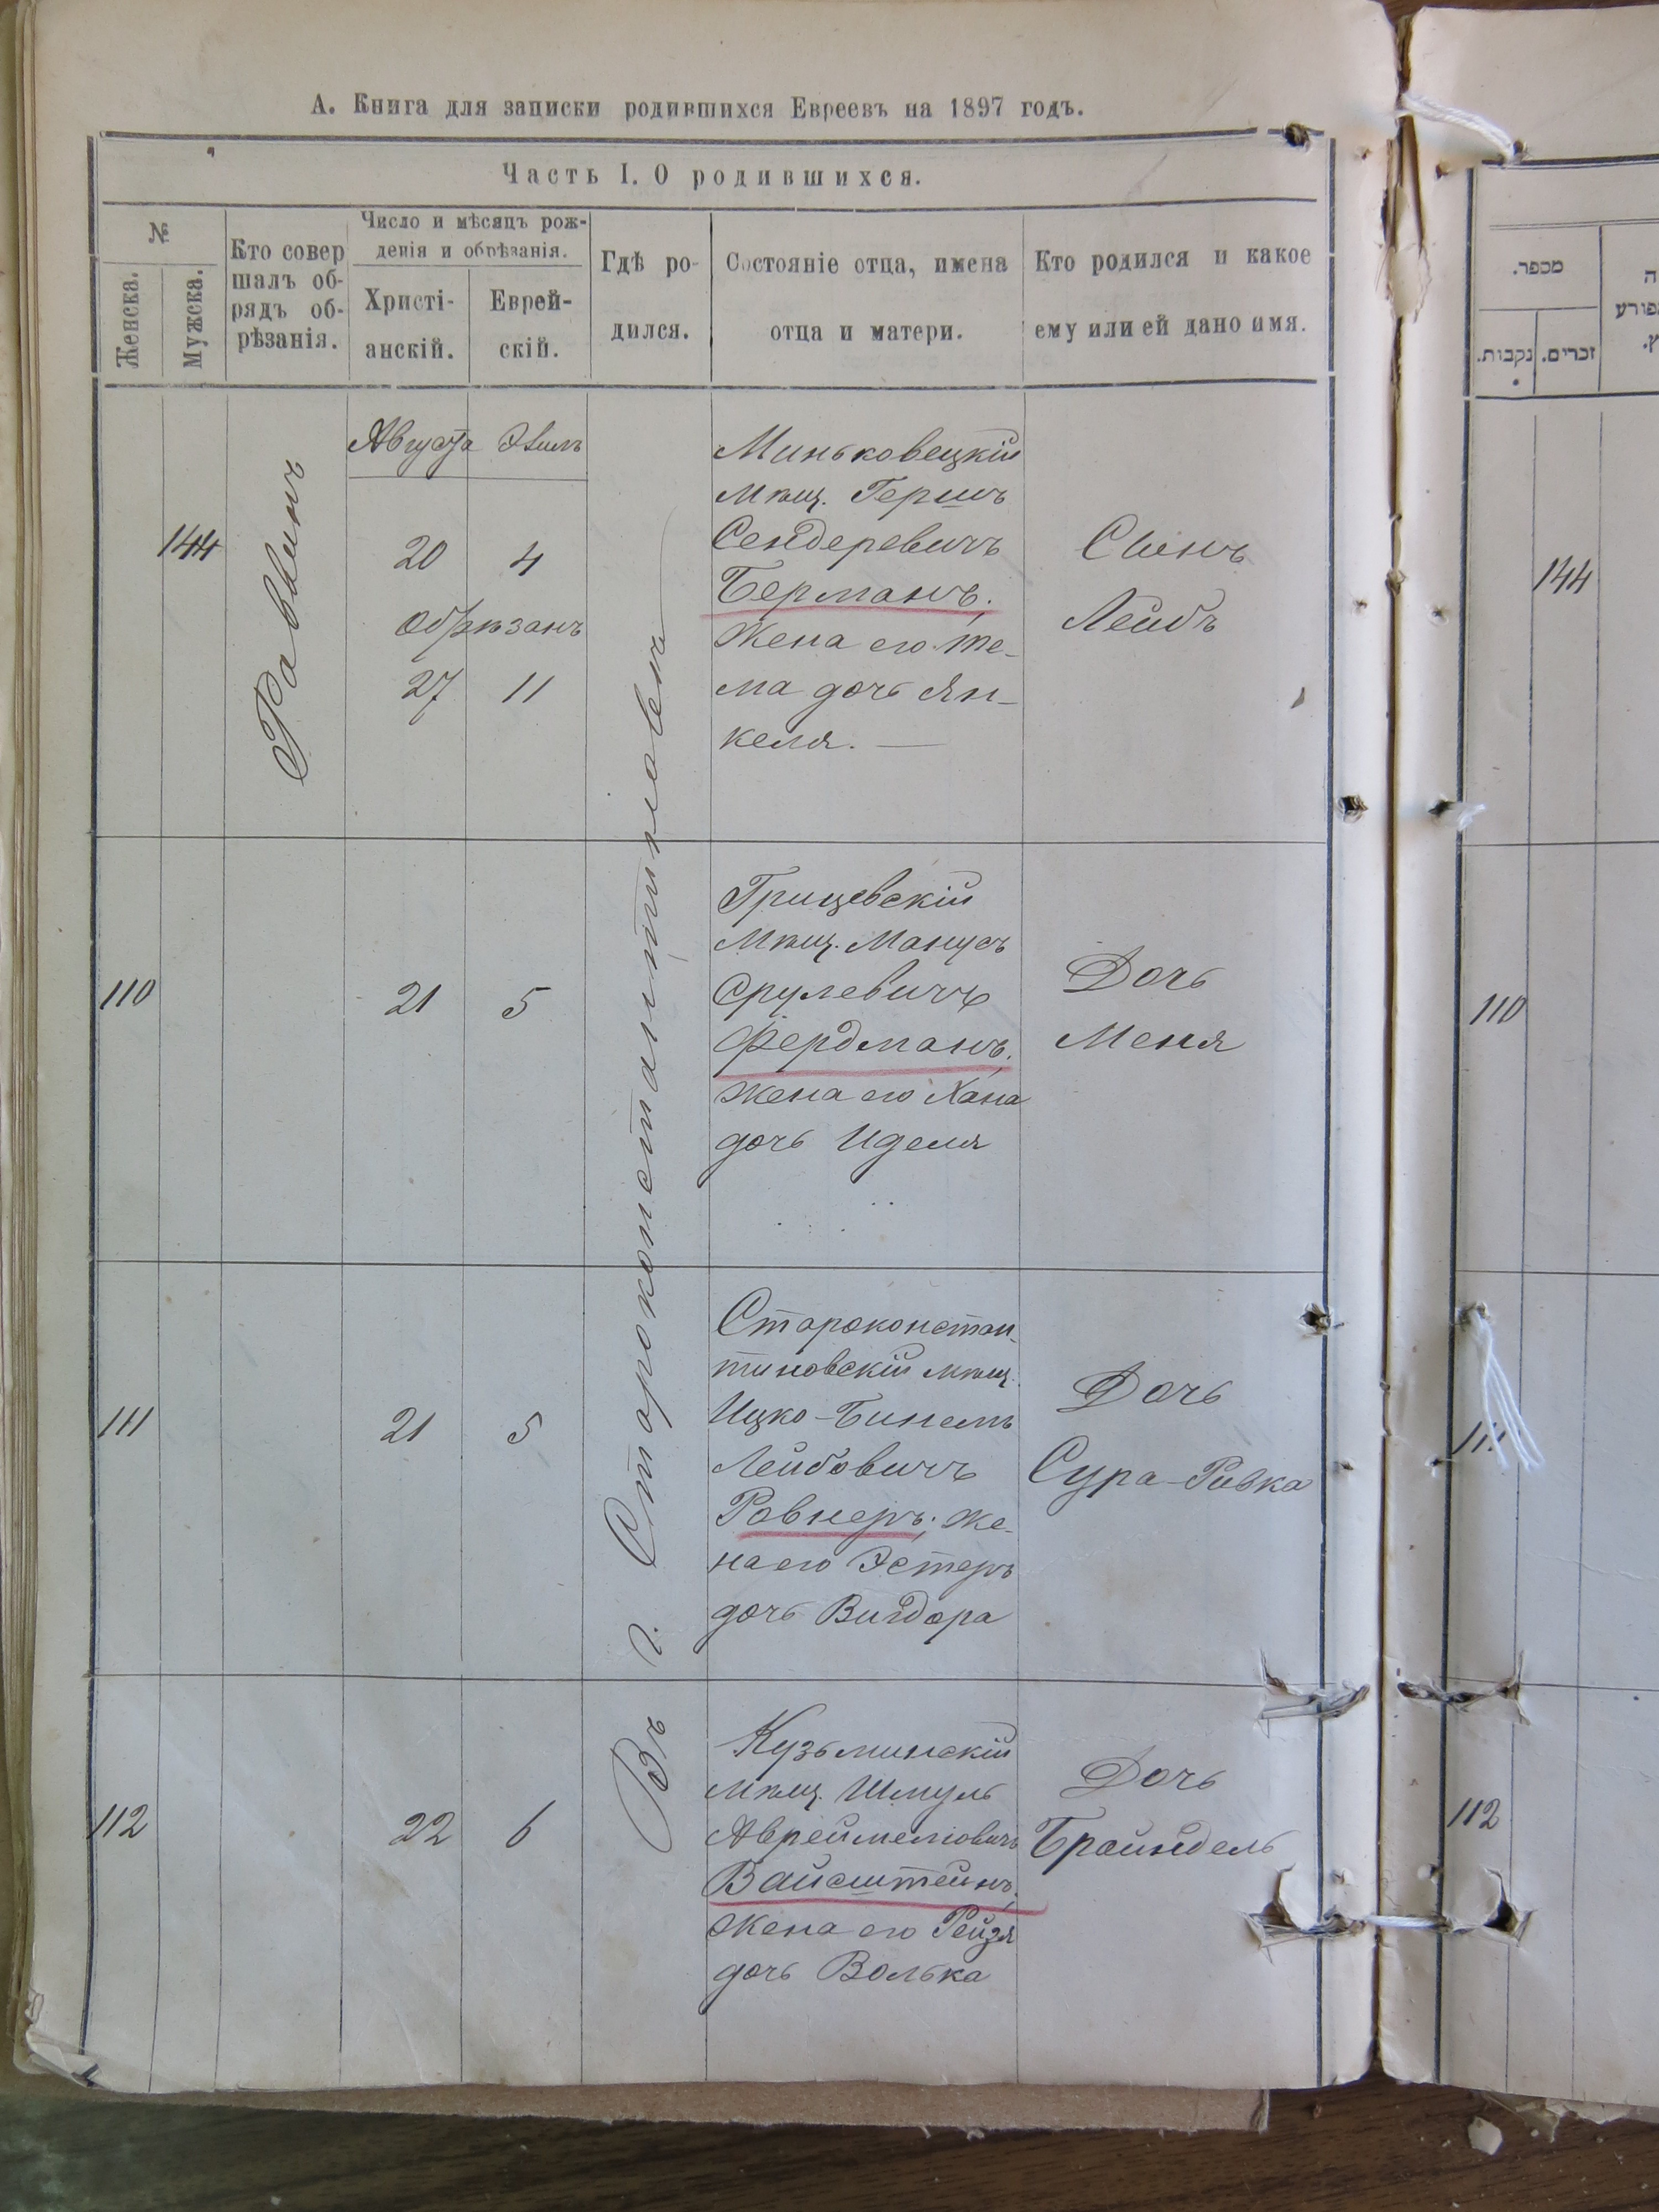 А. Книга для записки родившихся Евреевъ на 1897 годъ.
Часть I. О родившихся.
№
Женска.
Мужска.
Кто совер
шалъ об-
рядъ об-
рѣзанія.
Число и мѣсяцъ рож-
денія и обрѣзанія.
Христі-
анскій.
Еврей-
скій.
Гдѣ ро-
дился.
Состояніе отца, имена
отца и матери.
Кто родился и какое
ему или ей дано имя.
144
Раввинъ
Августа Элулъ
20 4
обрѣзанъ
27 11
Въ г. Староконстантиновѣ
Миньковецкій
мѣщ. Гершъ
Сендеревичъ
Берманъ;
жена его Те-
ма дочь Ян-
келя. —
Сынъ
Лейбъ
110
21 5
Грицевскій
мѣщ. Манусъ
Срулевичъ
Фердманъ;
жена его Хана
дочь Иделя
Дочь
Меня
111
21 5
Староконстан-
тиновскій мѣщ.
Ицко-Бинемъ
Лейбовичъ
Ровнеръ; же-
на его Эстеръ
дочь Вигдора
Дочь
Сура-Ривка
112
22 6
Кузьминскій
мѣщ. Шмуль
Авреймелювичъ
Вайсштейнъ;
жена его Рейзя
дочь Волька
Дочь
Брайндель
מכפר.
זכרים.
נקבות.
144
110
111
112